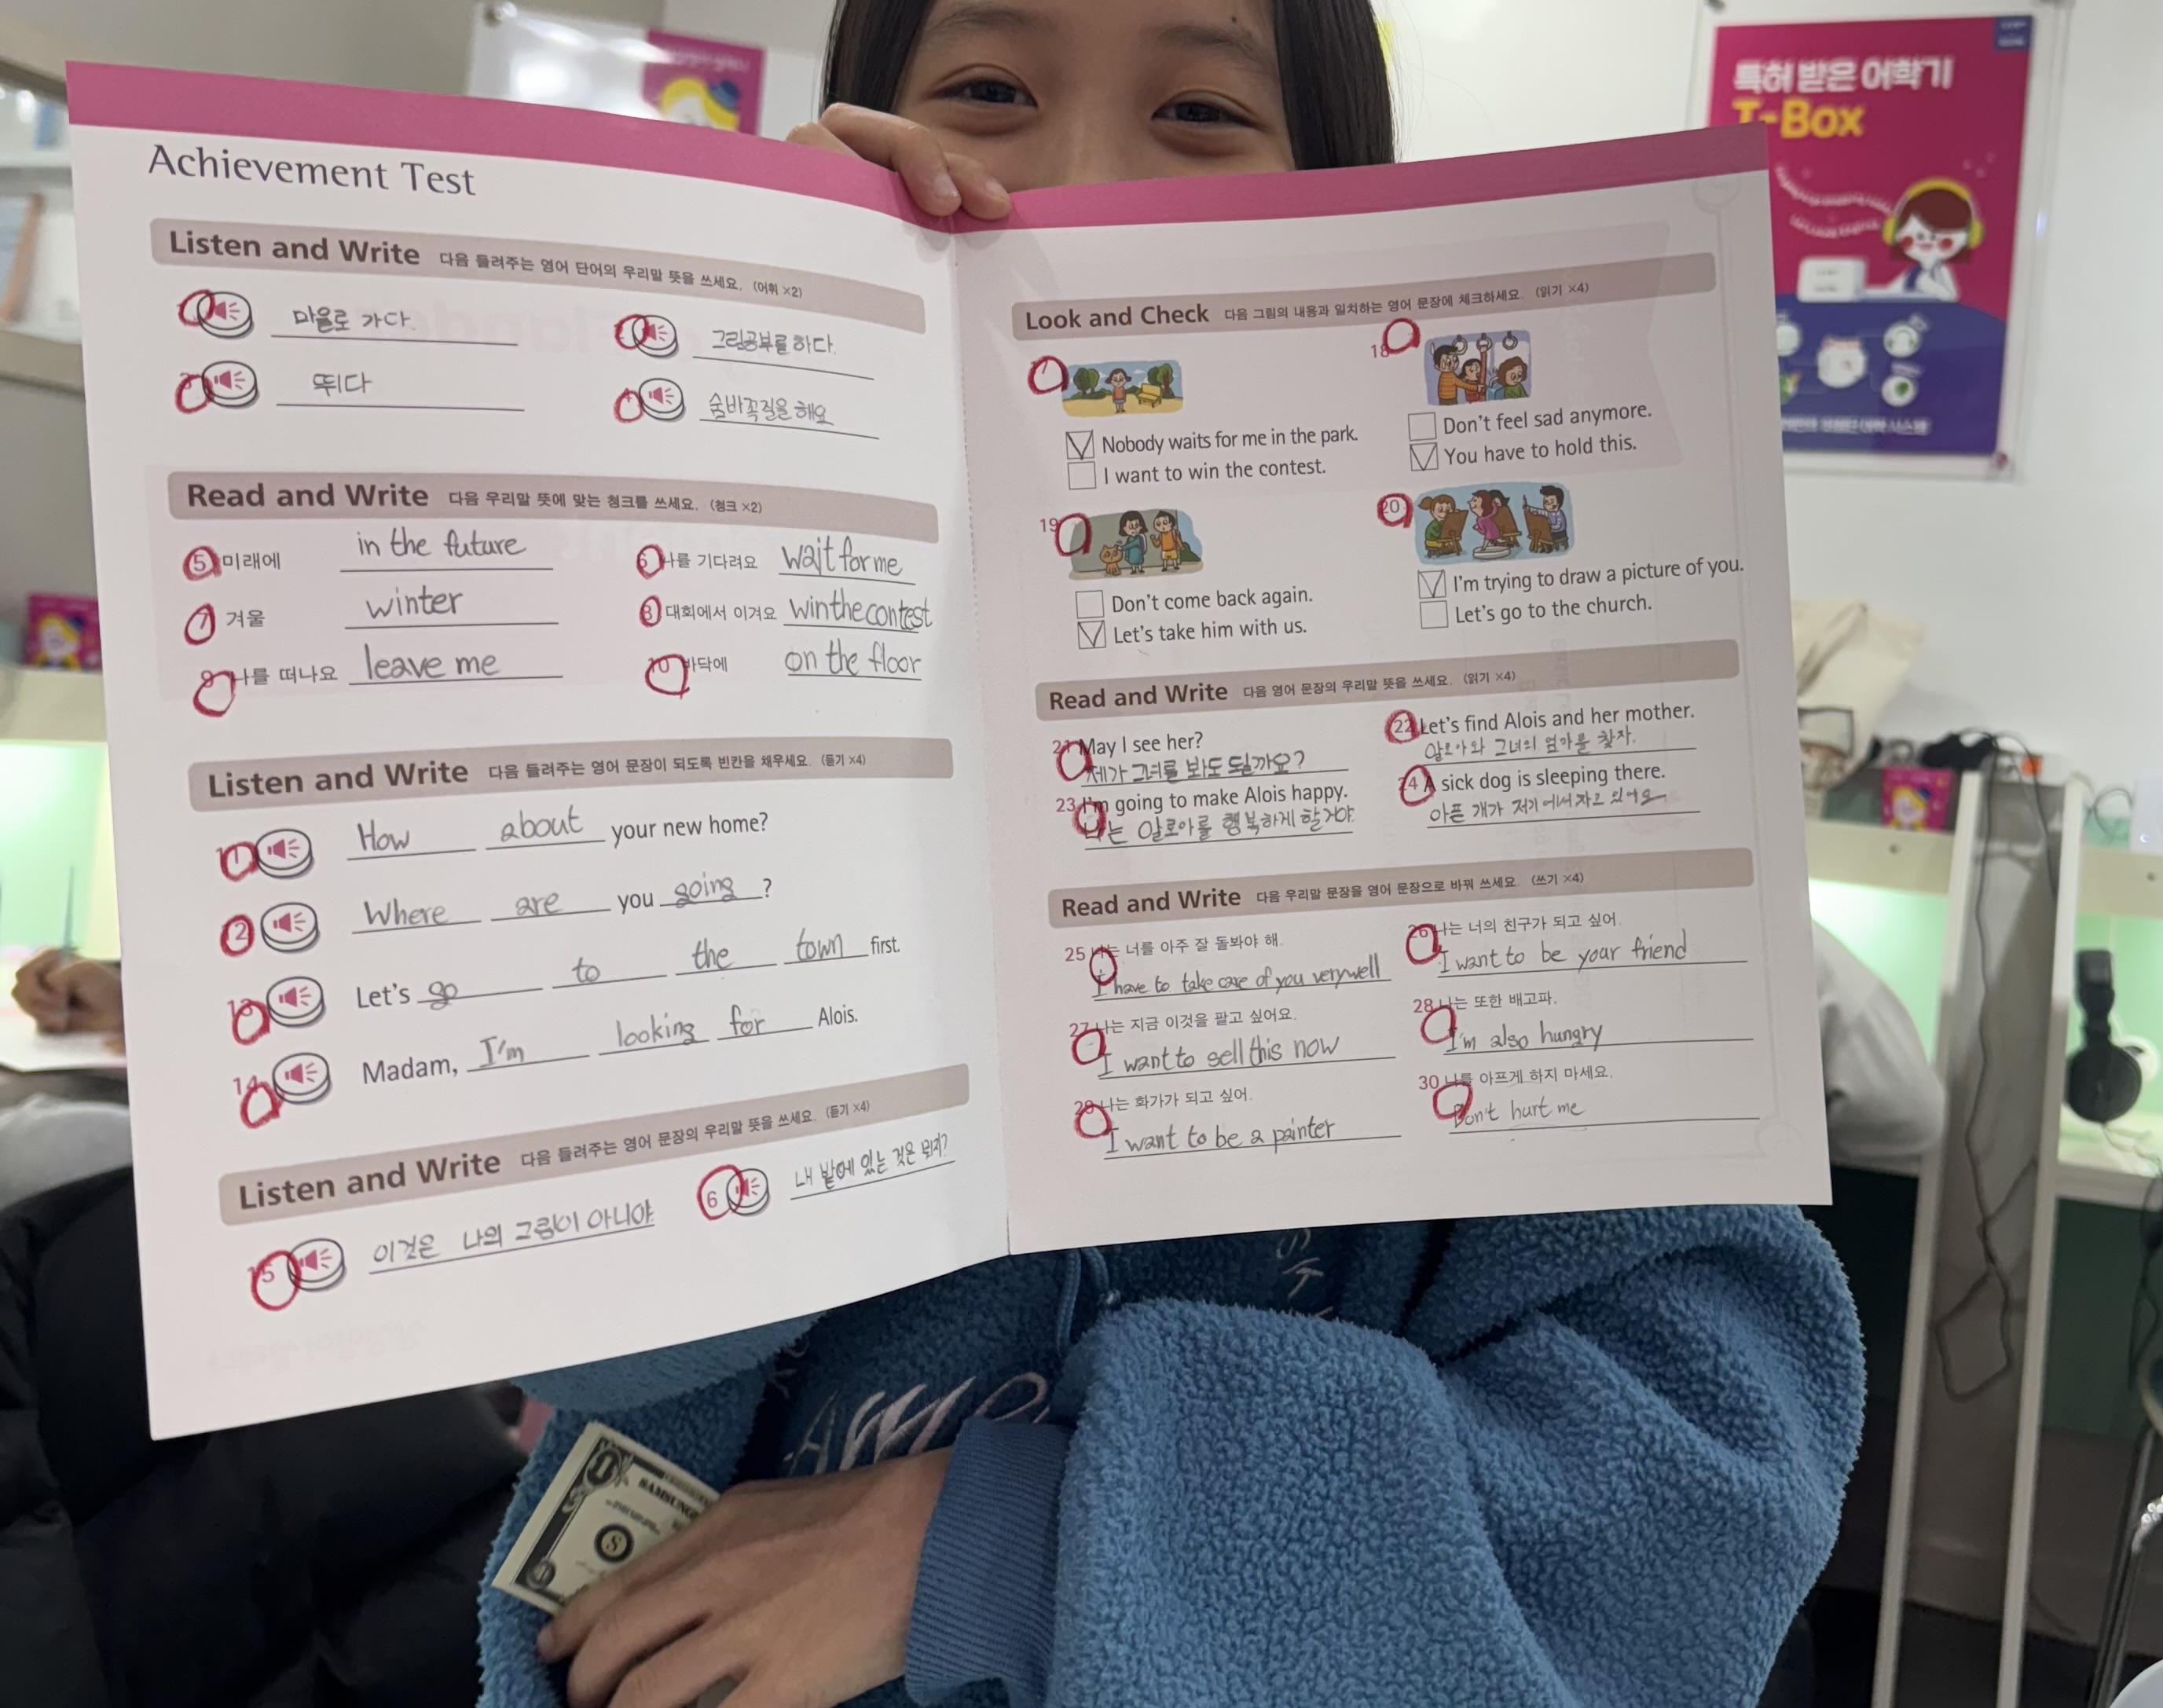 Achievement Test
Listen and Write 다음 들려주는 영어 단어의 우리말 뜻을 쓰세요. (어휘 ×2)
마을로 가다.
그림공부를 하다.
뛰다
숨바꼭질을 해요
Read and Write 다음 우리말 뜻에 맞는 청크를 쓰세요. (청크 ×2)
5 미래에 in the future
6 나를 기다려요 wait for me
7 겨울 winter
8 대회에서 이겨요 win the contest
9 나를 떠나요 leave me
10 바닥에 on the floor
Listen and Write 다음 들려주는 영어 문장이 되도록 빈칸을 채우세요. (듣기 ×4)
11 How about your new home?
12 Where are you going ?
13 Let's go to the town first.
14 Madam, I'm looking for Alois.
Listen and Write 다음 들려주는 영어 문장의 우리말 뜻을 쓰세요. (듣기 ×4)
15 이것은 나의 그림이 아니야
6 내 밭에 있는 것은 뭐지?
Look and Check 다음 그림의 내용과 일치하는 영어 문장에 체크하세요. (읽기 ×4)
Nobody waits for me in the park.
I want to win the contest.
18
Don't feel sad anymore.
You have to hold this.
19
Don't come back again.
Let's take him with us.
20
I'm trying to draw a picture of you.
Let's go to the church.
Read and Write 다음 영어 문장의 우리말 뜻을 쓰세요. (읽기 ×4)
21 May I see her?
제가 그녀를 봐도 될까요?
22 Let's find Alois and her mother.
알로아와 그녀의 엄마를 찾자.
23 I'm going to make Alois happy.
나는 알로아를 행복하게 할거야
24 A sick dog is sleeping there.
아픈 개가 저기에서 자고 있어요
Read and Write 다음 우리말 문장을 영어 문장으로 바꿔 쓰세요. (쓰기 ×4)
25 나는 너를 아주 잘 돌봐야 해.
I have to take care of you very well
26 나는 너의 친구가 되고 싶어.
I want to be your friend
27 나는 지금 이것을 팔고 싶어요.
I want to sell this now
28 나는 또한 배고파.
I'm also hungry
29 나는 화가가 되고 싶어.
I want to be a painter
30 나를 아프게 하지 마세요.
Don't hurt me
특허 받은 어학기
T-Box
SAMSUNG
1
S